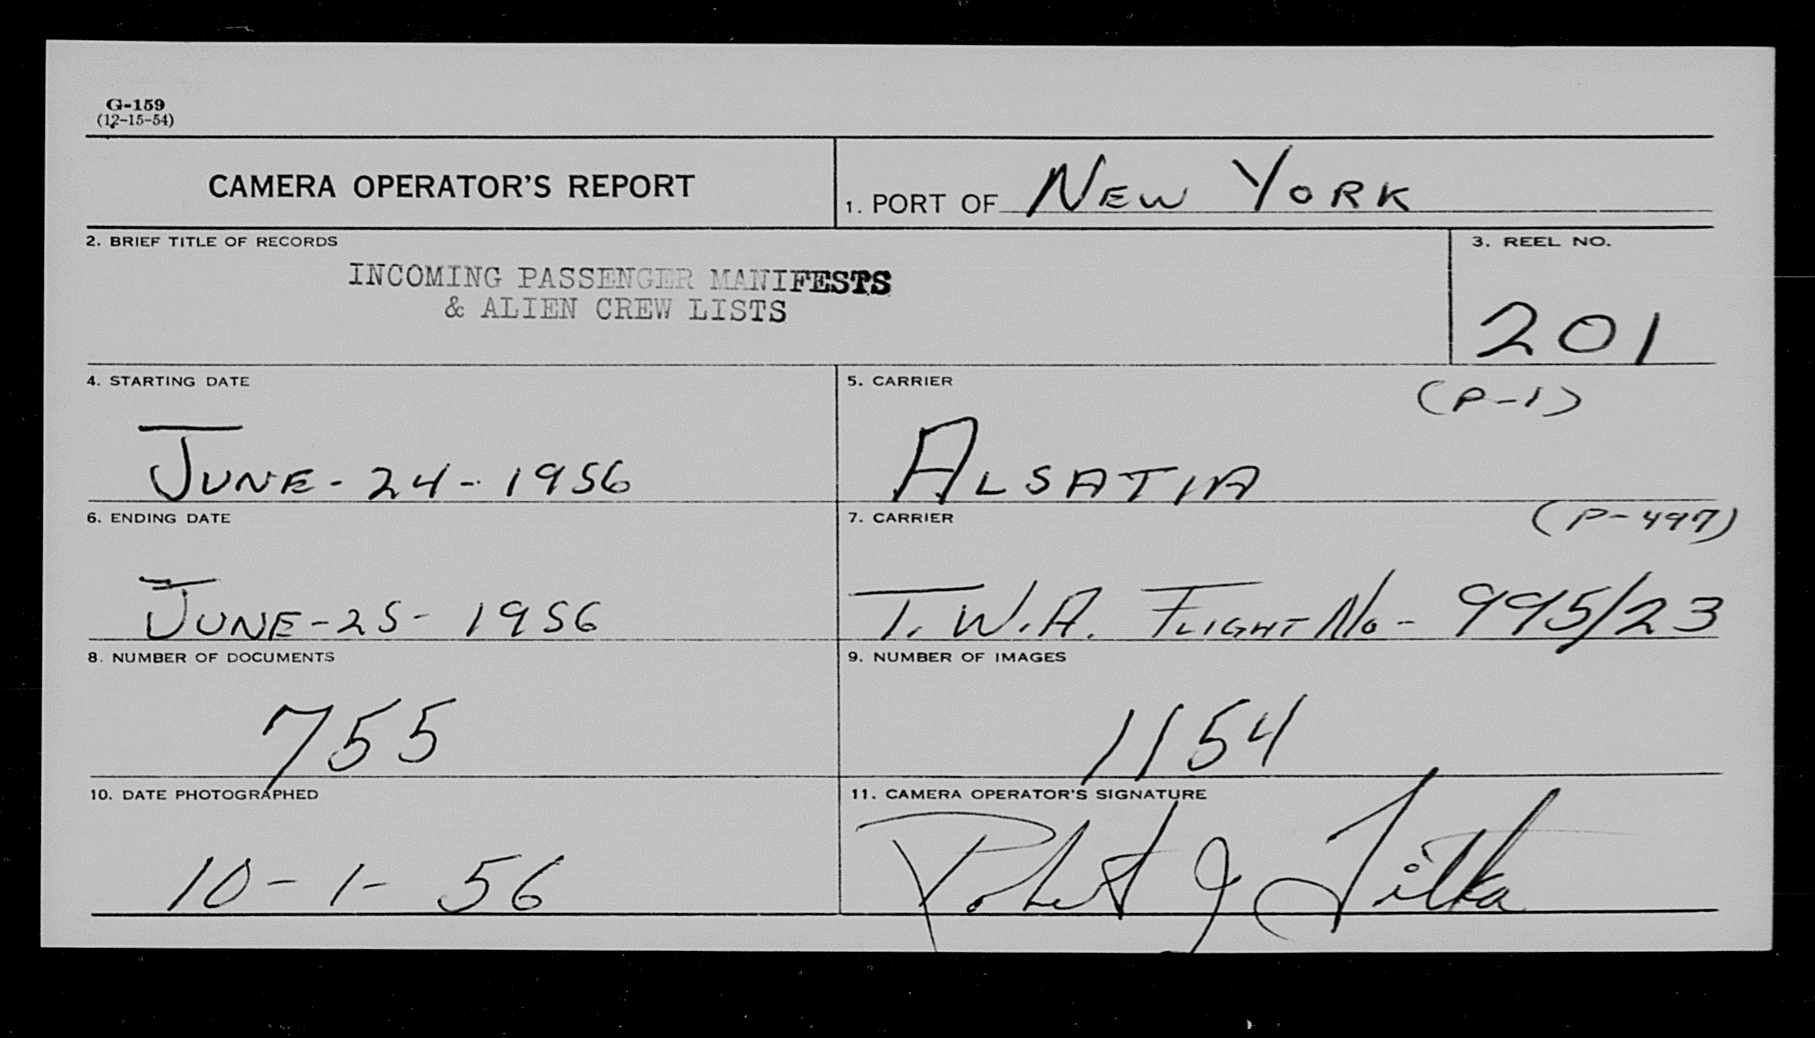 G-159
(12-15-54)
CAMERA OPERATOR'S REPORT
1. PORT OF NEW YORK
2. BRIEF TITLE OF RECORDS
INCOMING PASSENGER MANIFESTS
& ALIEN CREW LISTS
3. REEL NO.
201
4. STARTING DATE
JUNE-24-1956
5. CARRIER
(P-1)
ALSATIA
6. ENDING DATE
JUNE-25-1956
7. CARRIER
(P-497)
T.W.A. FLIGHT No- 995/23
8. NUMBER OF DOCUMENTS
755
9. NUMBER OF IMAGES
1154
10. DATE PHOTOGRAPHED
10-1-56
11. CAMERA OPERATOR'S SIGNATURE
Robert J